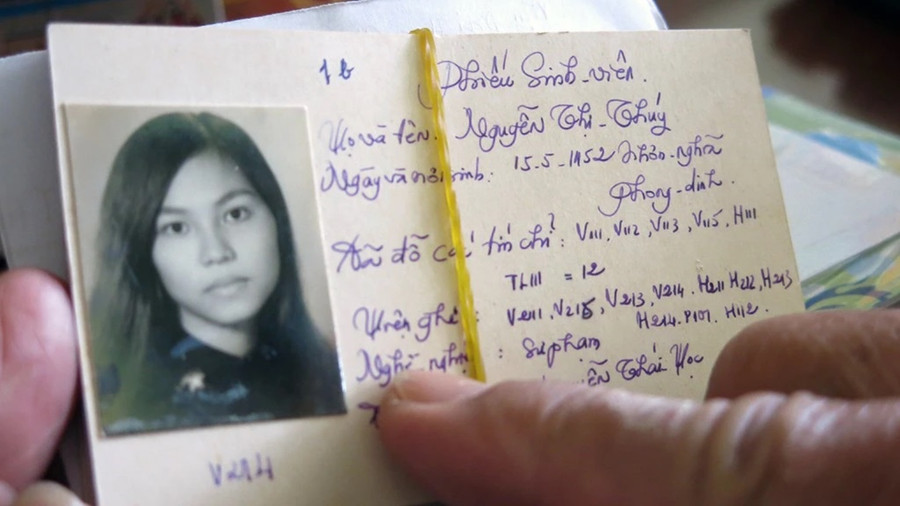 1b
Phiếu Sinh-viên.
Họ và tên. Nguyễn Thị-Thúy
Ngày và nơi sinh: 15-5-1952 Nhơn-nghĩa
Phong-dinh.
Đã đỗ các tín chỉ: V111, V112, V113, V115, H111
TL111 = 12
V2111, V215, V213, V214. H211 H212, H213
H214. P101. H112.
Nghề nghi : Sư phạm
Thái Học
V214